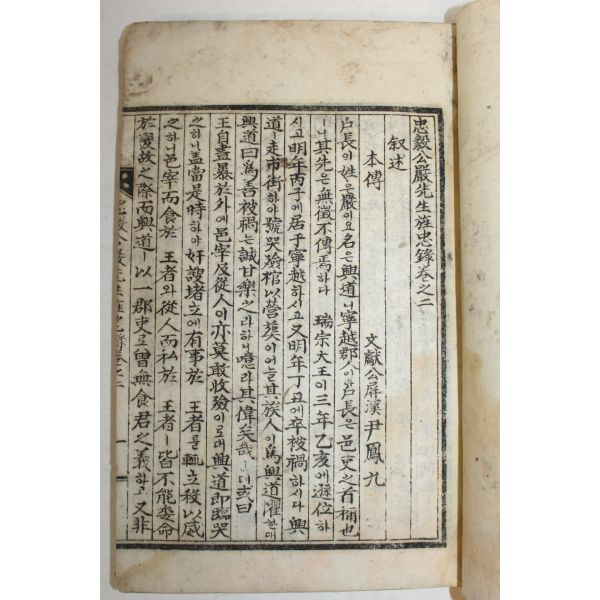 忠毅公嚴先生旌忠錄卷之二
叙述
本傳
文獻公屛溪尹鳳九
戶長의姓은嚴이요名은興道니寧越郡人이라戶長은邑吏之首稱也
ㅣ니其先은無徵不傳焉하다 瑞宗大王이三年乙亥에遜位하
시고明年丙子에居于寧越하시고又明年丁丑에卒被禍하시다興
道ㅣ走市街하야號哭殮棺以營葬이어늘其族人이爲興道懼한대
興道曰爲善被禍는誠甘樂之라하니噫라其偉矣哉ㄴ뎌或曰
王自盡暴於外에邑宰及從人이亦莫敢收殮이로대興道卽臨哭
之하니盖當是時하야奸諛堵立에有事於 王者를輒立殺以威
之하니邑宰而食於 王者와從人而私於 王者ㅣ皆不能委命
於變故之際而興道ㅣ以一郡吏로曾無食君之義하고又非
忠毅公嚴先生旌忠錄卷之二 一